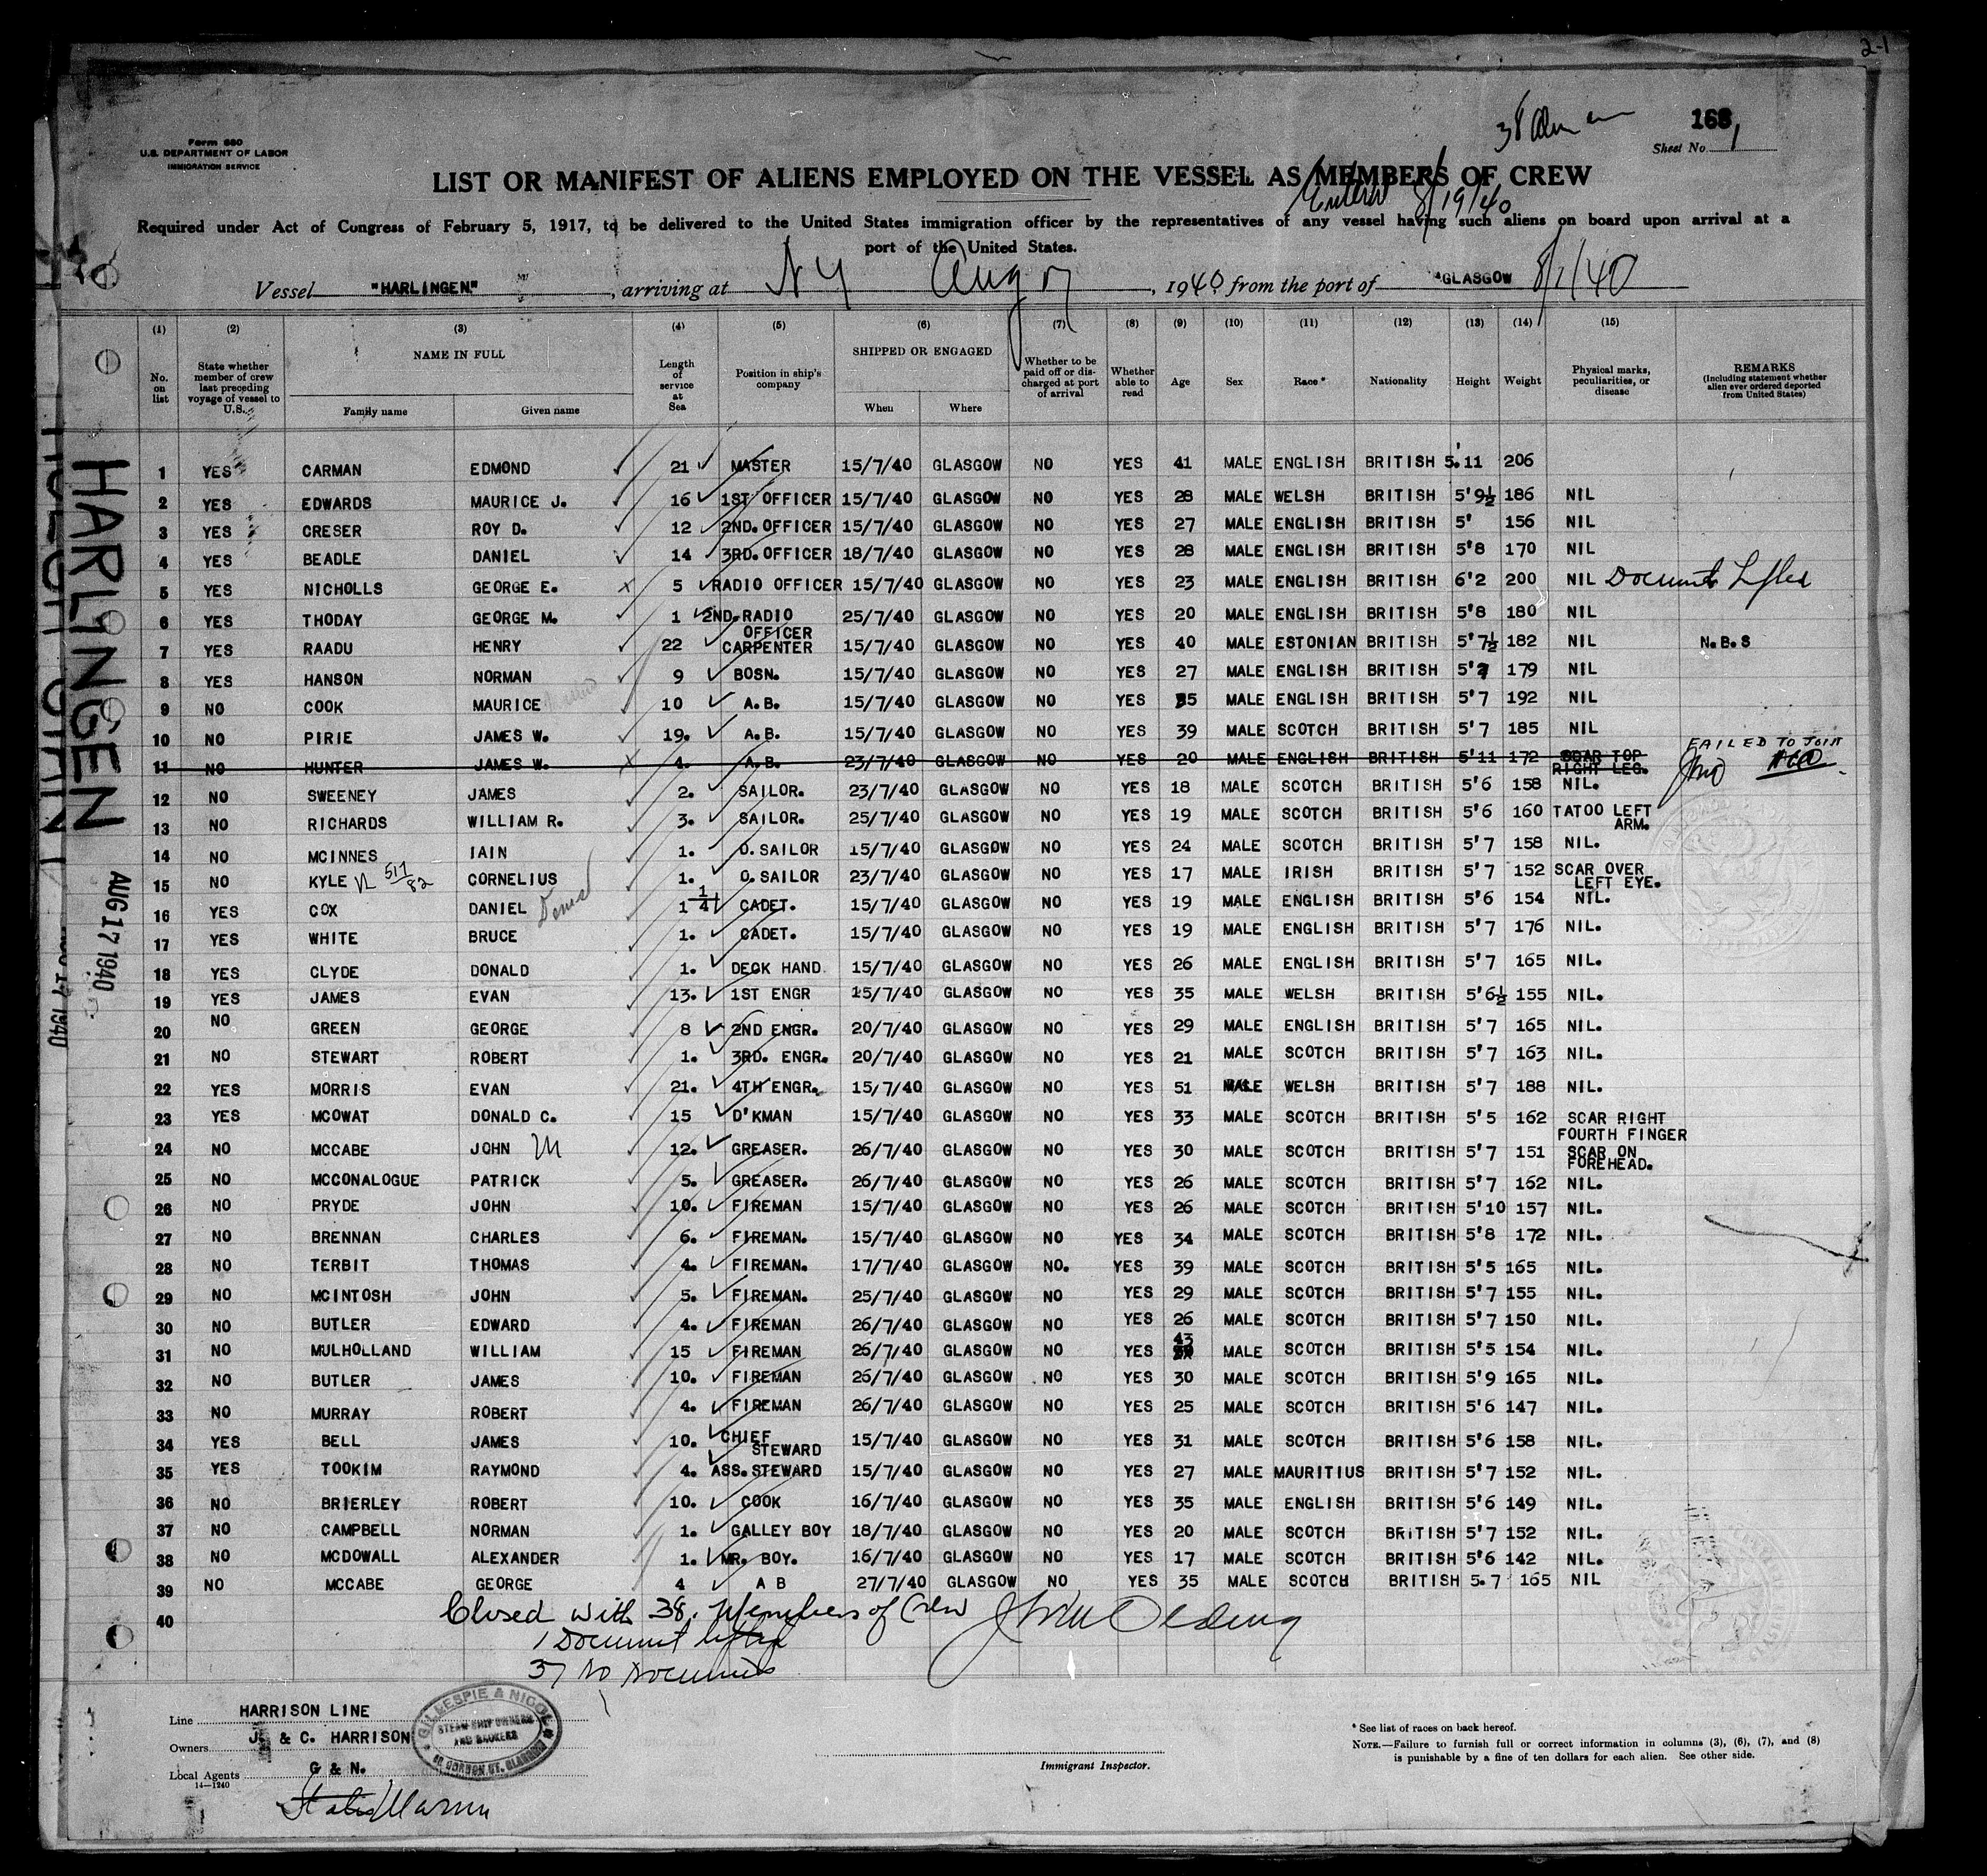 2-1
38 Alien
168
Form 680
U.S. DEPARTMENT OF LABOR
IMMIGRATION SERVICE
Sheet No. 1
LIST OR MANIFEST OF ALIENS EMPLOYED ON THE VESSEL AS MEMBERS OF CREW
Entered 8/19/40
Required under Act of Congress of February 5, 1917, to be delivered to the United States immigration officer by the representatives of any vessel having such aliens on board upon arrival at a
port of the United States.
Vessel "HARLINGEN" , arriving at N Y Aug 17 , 1940 from the port of "GLASGOW 8/1/40
(1) (2) (3) (4) (5) (6) (7) (8) (9) (10) (11) (12) (13) (14) (15)
No. on list State whether member of crew last preceding voyage of vessel to U.S. NAME IN FULL Family name Given name Length of service at Sea Position in ship's company SHIPPED OR ENGAGED When Where Whether to be paid off or discharged at port of arrival Whether able to read Age Sex Race* Nationality Height Weight Physical marks, peculiarities, or disease REMARKS (Including statement whether alien ever ordered deported from United States)
1 YES CARMAN EDMOND 21 MASTER 15/7/40 GLASGOW NO YES 41 MALE ENGLISH BRITISH 5.11 206
2 YES EDWARDS MAURICE J. 16 1ST OFFICER 15/7/40 GLASGOW NO YES 28 MALE WELSH BRITISH 5'9½ 186 NIL
3 YES CRESER ROY D. 12 2ND. OFFICER 15/7/40 GLASGOW NO YES 27 MALE ENGLISH BRITISH 5' 156 NIL
4 YES BEADLE DANIEL 14 3RD. OFFICER 18/7/40 GLASGOW NO YES 28 MALE ENGLISH BRITISH 5'8 170 NIL
5 YES NICHOLLS GEORGE E. 5 RADIO OFFICER 15/7/40 GLASGOW NO YES 23 MALE ENGLISH BRITISH 6'2 200 NIL Documents Lifted
6 YES THODAY GEORGE M. 1 2ND. RADIO OFFICER 25/7/40 GLASGOW NO YES 20 MALE ENGLISH BRITISH 5'8 180 NIL
7 YES RAADU HENRY 22 CARPENTER 15/7/40 GLASGOW NO YES 40 MALE ESTONIAN BRITISH 5'7½ 182 NIL N.B.S
8 YES HANSON NORMAN 9 BOSN. 15/7/40 GLASGOW NO YES 27 MALE ENGLISH BRITISH 5'7 179 NIL
9 NO COOK MAURICE 10 A.B. 15/7/40 GLASGOW NO YES 35 MALE ENGLISH BRITISH 5'7 192 NIL
10 NO PIRIE JAMES W. 19. A.B. 15/7/40 GLASGOW NO YES 39 MALE SCOTCH BRITISH 5'7 185 NIL
11 NO HUNTER JAMES W. 4. A.B. 23/7/40 GLASGOW NO YES 20 MALE ENGLISH BRITISH 5'11 172 SCAR TOP RIGHT LEG. FAILED TO JOIN
12 NO SWEENEY JAMES 2. SAILOR. 23/7/40 GLASGOW NO YES 18 MALE SCOTCH BRITISH 5'6 158 NIL.
13 NO RICHARDS WILLIAM R. 3. SAILOR. 25/7/40 GLASGOW NO YES 19 MALE SCOTCH BRITISH 5'6 160 TATOO LEFT ARM.
14 NO MCINNES IAIN 1. O.SAILOR 15/7/40 GLASGOW NO YES 24 MALE SCOTCH BRITISH 5'7 158 NIL.
15 NO KYLE 517/82 CORNELIUS 1. O.SAILOR 23/7/40 GLASGOW NO YES 17 MALE IRISH BRITISH 5'7 152 SCAR OVER LEFT EYE.
16 YES COX DANIEL Denis 1 1/4 CADET. 15/7/40 GLASGOW NO YES 19 MALE ENGLISH BRITISH 5'6 154 NIL.
17 YES WHITE BRUCE 1. CADET. 15/7/40 GLASGOW NO YES 19 MALE ENGLISH BRITISH 5'7 176 NIL.
18 YES CLYDE DONALD 1. DECK HAND 15/7/40 GLASGOW NO YES 26 MALE ENGLISH BRITISH 5'7 165 NIL.
19 YES JAMES EVAN 13. 1ST ENGR 15/7/40 GLASGOW NO YES 35 MALE WELSH BRITISH 5'6½ 155 NIL.
20 NO GREEN GEORGE 8 2ND ENGR. 20/7/40 GLASGOW NO YES 29 MALE ENGLISH BRITISH 5'7 165 NIL.
21 NO STEWART ROBERT 1. 3RD. ENGR. 20/7/40 GLASGOW NO YES 21 MALE SCOTCH BRITISH 5'7 163 NIL.
22 YES MORRIS EVAN 21. 4TH ENGR. 15/7/40 GLASGOW NO YES 51 MALE WELSH BRITISH 5'7 188 NIL.
23 YES MCOWAT DONALD C. 15 D'KMAN 15/7/40 GLASGOW NO YES 33 MALE SCOTCH BRITISH 5'5 162 SCAR RIGHT FOURTH FINGER
24 NO MCCABE JOHN M 12. GREASER. 26/7/40 GLASGOW NO YES 30 MALE SCOTCH BRITISH 5'7 151 SCAR ON FOREHEAD.
25 NO MCCONALOGUE PATRICK 5. GREASER. 26/7/40 GLASGOW NO YES 26 MALE SCOTCH BRITISH 5'7 162 NIL.
26 NO PRYDE JOHN 10. FIREMAN 15/7/40 GLASGOW NO YES 26 MALE SCOTCH BRITISH 5'10 157 NIL.
27 NO BRENNAN CHARLES 6. FIREMAN. 15/7/40 GLASGOW NO YES 34 MALE SCOTCH BRITISH 5'8 172 NIL.
28 NO TERBIT THOMAS 4. FIREMAN. 17/7/40 GLASGOW NO. YES 39 MALE SCOTCH BRITISH 5'5 165 NIL.
29 NO MCINTOSH JOHN 5. FIREMAN. 25/7/40 GLASGOW NO YES 29 MALE SCOTCH BRITISH 5'7 155 NIL.
30 NO BUTLER EDWARD 4. FIREMAN 26/7/40 GLASGOW NO YES 26 MALE SCOTCH BRITISH 5'7 150 NIL.
31 NO MULHOLLAND WILLIAM 15 FIREMAN 26/7/40 GLASGOW NO YES 43 MALE SCOTCH BRITISH 5'5 154 NIL.
32 NO BUTLER JAMES 10. FIREMAN 26/7/40 GLASGOW NO YES 30 MALE SCOTCH BRITISH 5'9 165 NIL.
33 NO MURRAY ROBERT 4. FIREMAN 26/7/40 GLASGOW NO YES 25 MALE SCOTCH BRITISH 5'6 147 NIL.
34 YES BELL JAMES 10. CHIEF STEWARD 15/7/40 GLASGOW NO YES 31 MALE SCOTCH BRITISH 5'6 158 NIL.
35 YES TOOKIM RAYMOND 4. ASS. STEWARD 15/7/40 GLASGOW NO YES 27 MALE MAURITIUS BRITISH 5'7 152 NIL.
36 NO BRIERLEY ROBERT 10. COOK 16/7/40 GLASGOW NO YES 35 MALE ENGLISH BRITISH 5'6 149 NIL.
37 NO CAMPBELL NORMAN 1. GALLEY BOY 18/7/40 GLASGOW NO YES 20 MALE SCOTCH BRITISH 5'7 152 NIL.
38 NO MCDOWALL ALEXANDER 1. MR. BOY. 16/7/40 GLASGOW NO YES 17 MALE SCOTCH BRITISH 5'6 142 NIL.
39 NO MCCABE GEORGE 4 A B 27/7/40 GLASGOW NO YES 35 MALE SCOTCH BRITISH 5.7 165 NIL
40 Closed with 38 Members of Crew
1 Document lifted
37 No Documents
HARLINGEN
AUG 17 1940
Line HARRISON LINE
Owners J. & C. HARRISON
Local Agents G & N.
14—1240
GILLESPIE & NICOL
STEAM SHIP OWNERS
AND BROKERS
GORDON ST. GLASGOW
Immigrant Inspector.
* See list of races on back hereof.
NOTE.—Failure to furnish full or correct information in columns (3), (6), (7), and (8)
is punishable by a fine of ten dollars for each alien. See other side.